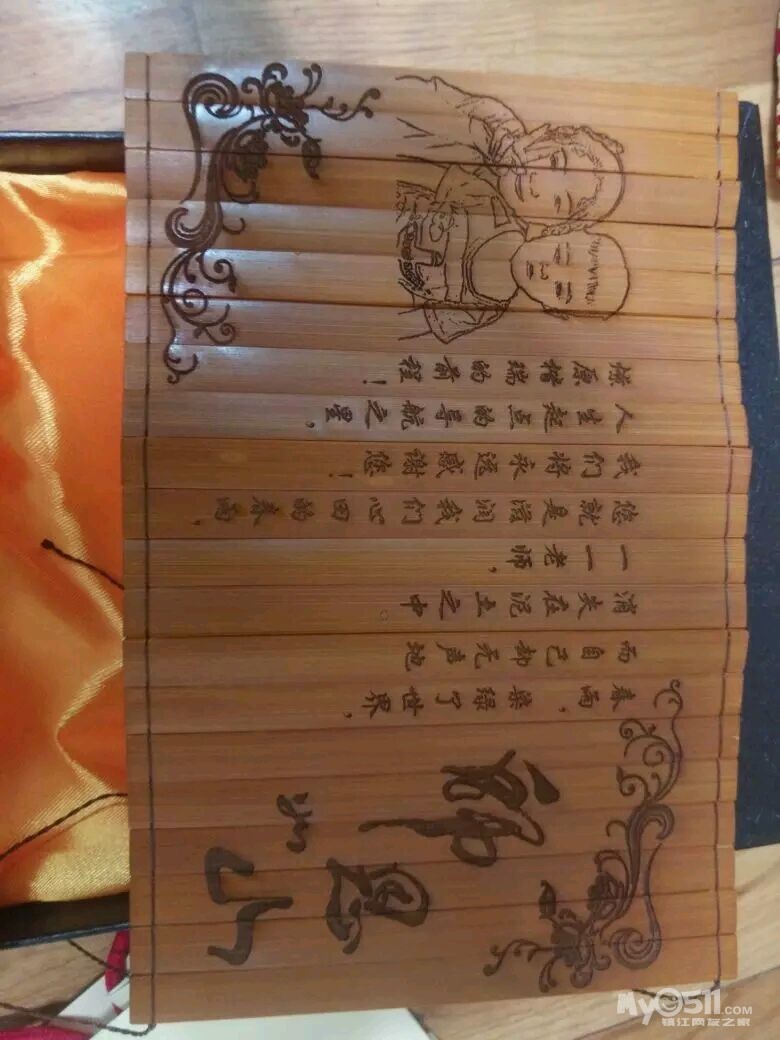 师恩如山
春雨，染绿了世界，
而自己却无声地
消失在泥土之中
一一老师，
您就是滋润我们心田的春雨，
我们将永远感谢您！
人生起点的导航之星，
原楷瑞的前程！
My0511.COM
镇江网友之家